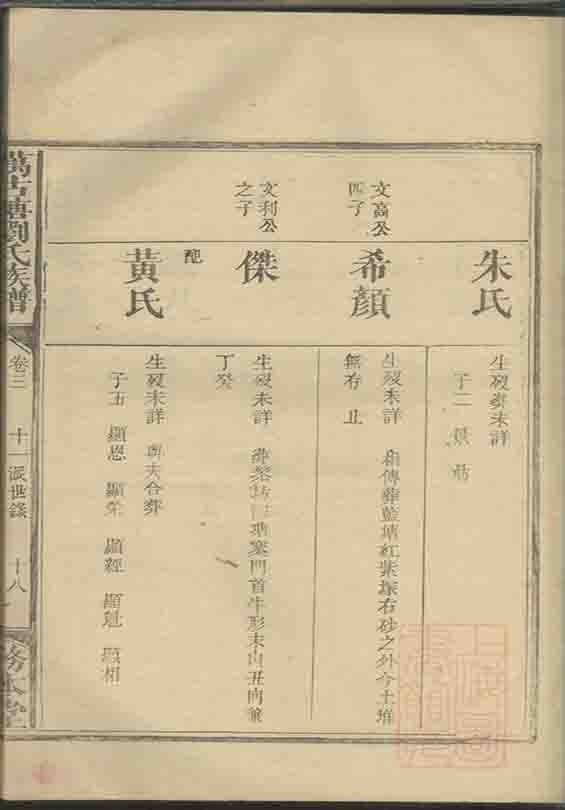 朱氏
生歿葬未詳
子二
文高公
四子
希顏
生歿未詳 相傳葬藍塘紅紫塅右砂之外今土堆
無存 止
文利公
之子
傑
生歿未詳 塘寨門首牛形未山丑向兼
丁癸
配
黃氏
生歿未詳 與夫合葬
子五 顯恩 顯榮 顯經 顯魁 顯相
萬古塘劉氏族譜
卷三 十一派世錄 十八
務本堂
上海圖